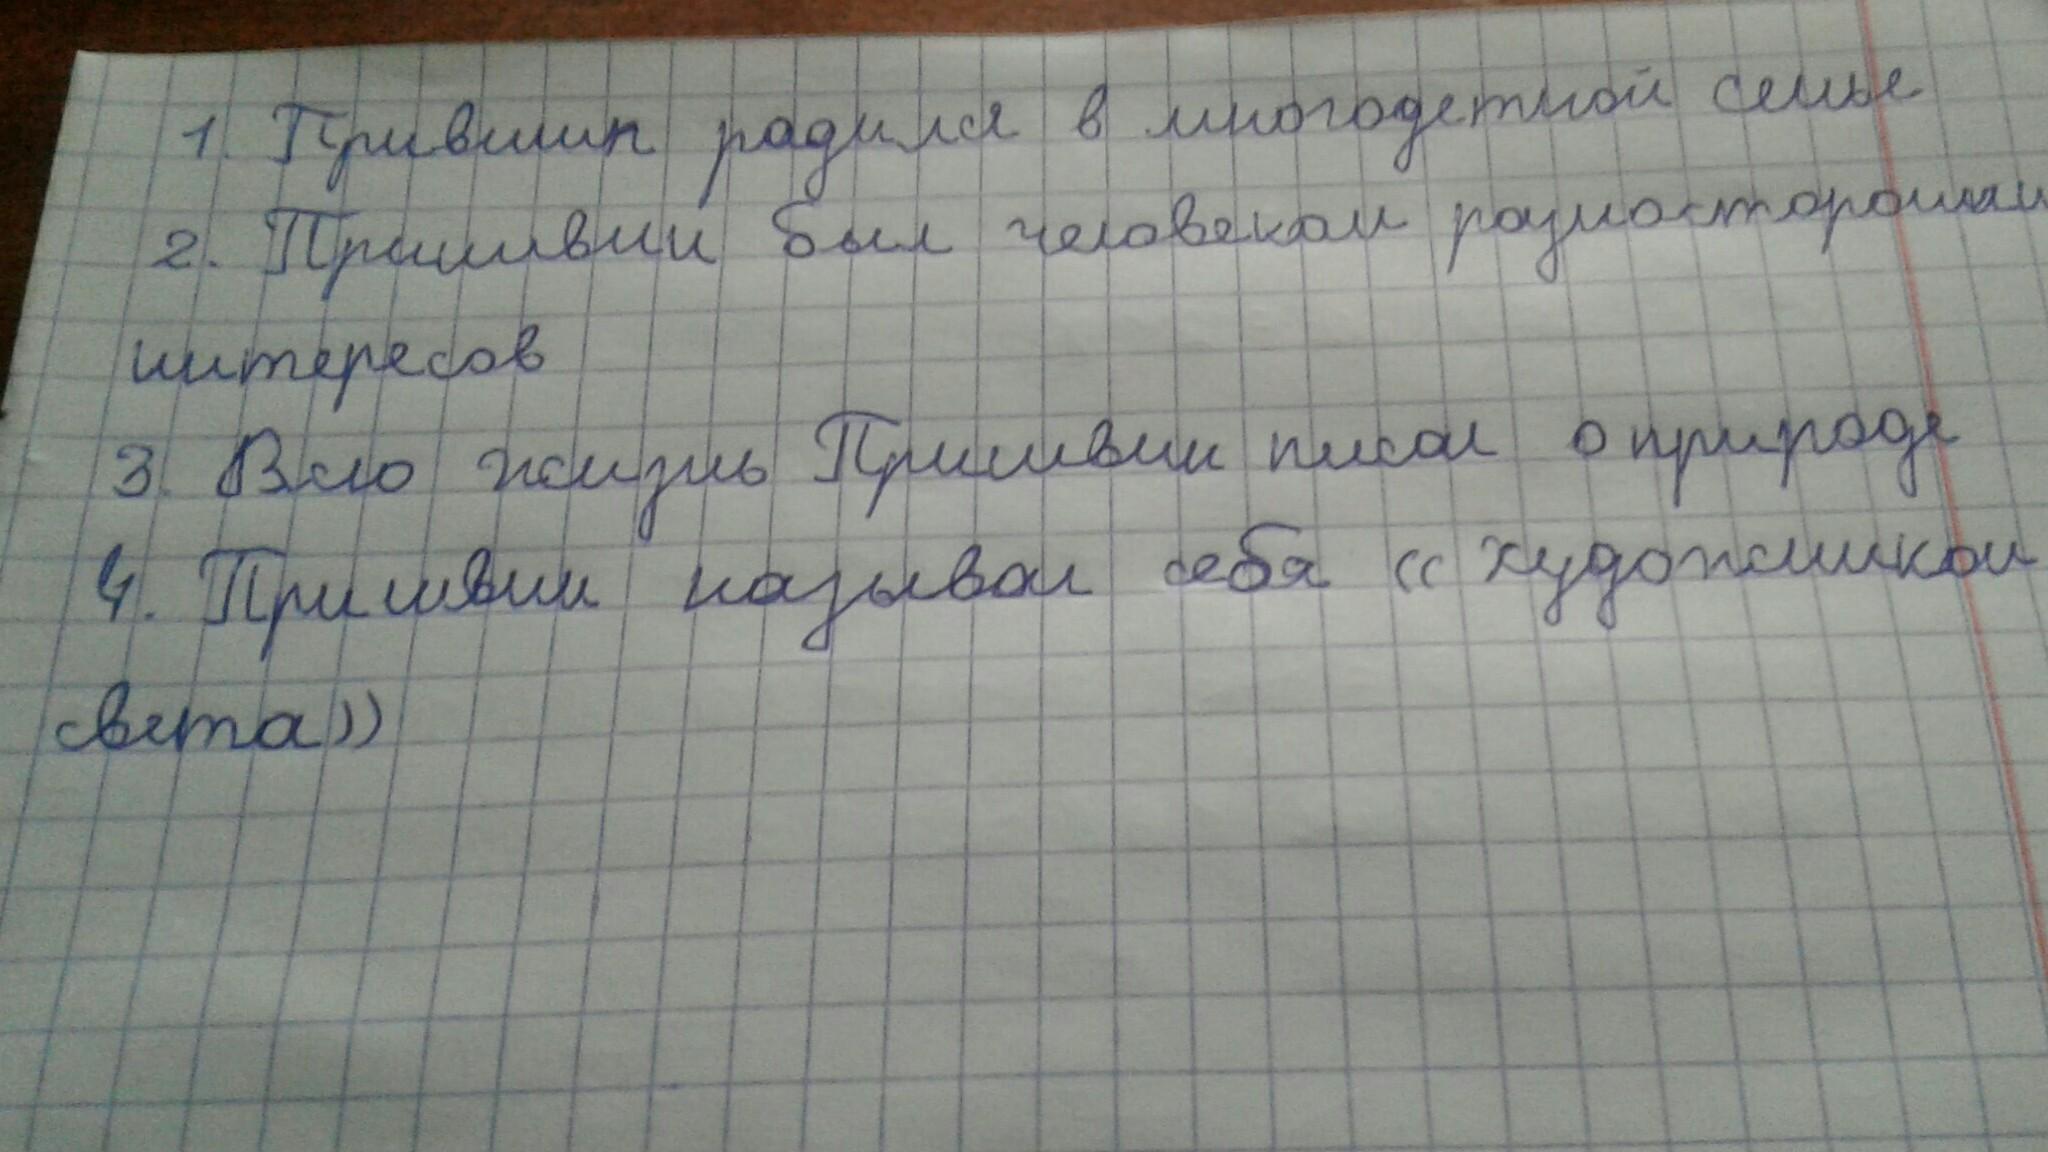 1. Прившин радился в многодетной семье
2. Пришвин был человеком разносторонни
интересов
3. Всю жизнь Пришвин писал о природе
4. Пришвин называл себя «художником
света»